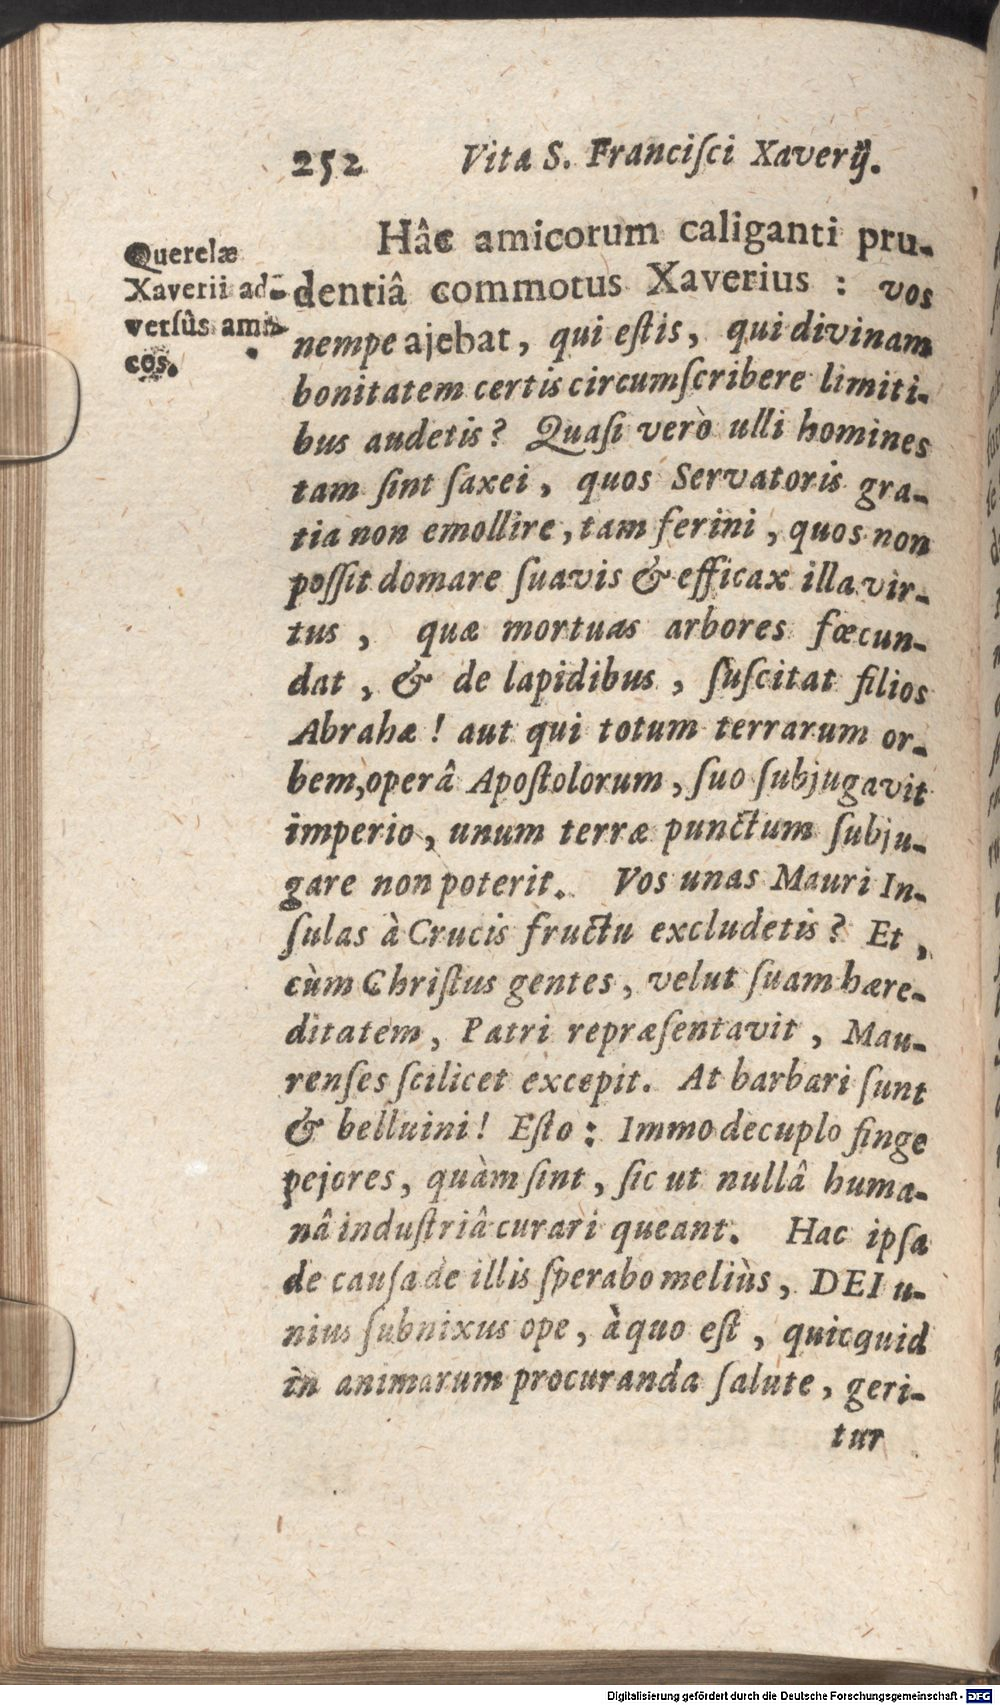 252 Vita S. Franciſci Xaverij.
Querelæ
Xaverii ad-
verſûs ami-
cos.
Hâc amicorum caliganti pru-
dentiâ commotus Xaverius : vos
nempe ajebat, qui eſtis, qui divinam
bonitatem certis circumſcribere limiti-
bus audetis? Quaſi verò ulli homines
tam ſint ſaxei, quos Servatoris gra-
tia non emollire, tam ferini, quos non
poſſit domare ſuavis & efficax illa vir-
tus , quæ mortuas arbores fœcun-
dat , & de lapidibus , ſuſcitat filios
Abrahæ! aut qui totum terrarum or-
bem, operâ Apoſtolorum, ſuo ſubjugavit
imperio, unum terræ punctum ſubju-
gare non poterit. Vos unas Mauri In-
ſulas à Crucis fructu excludetis? Et ,
cùm Chriſtus gentes, velut ſuam hære-
ditatem, Patri repræſentavit , Mau-
renſes ſcilicet excepit. At barbari ſunt
& belluini! Eſto: Immo decuplo finge
pejores, quàm ſint, ſic ut nullâ huma-
nâ induſtriâ curari queant. Hac ipſa
de cauſa de illis ſperabo meliùs, DEI u-
nius ſubnixus ope, à quo eſt , quicquid
in animarum procuranda ſalute, geri-
tur
Digitalisierung gefördert durch die Deutsche Forschungsgemeinschaft - DFG